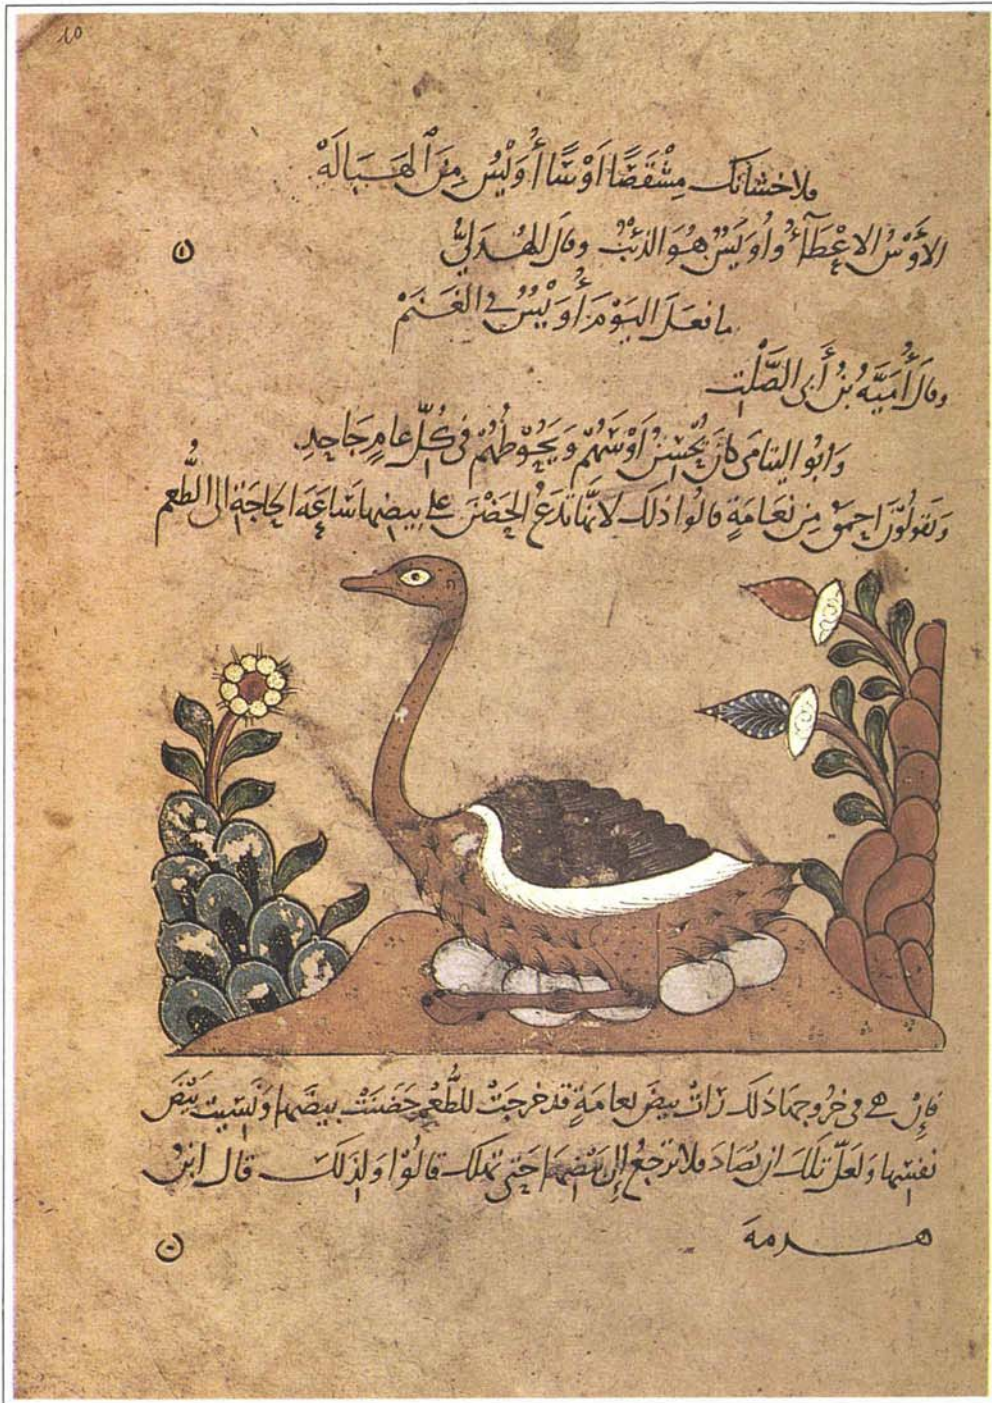 10
فلاحشانك مِشْقَصًا أَوْسًا أُوَيْسُ مِنَ الهَبَالَهْ
الأَوْسُ الاعْطَآءُ وأُوَيْسٌ هُوَ الذئبُ وقال الهُذَلِيُّ
ما فعَلَ اليَوْمَ أُوَيْسٌ في الغَنَمْ
وقال أُمَيَّةُ بنُ أَبي الصَّلْتِ
وَابُو اليتامَى كانَ يُحْسِنُ أَوْسَهُمْ وَيَحُوْطُهُمْ في كُلِّ عامٍ جَاحِدِ
وَيَقولُوْنَ احمَقُ مِن نعَامَةٍ قالُوا ذلك لانهَّا تدَعُ الحَضْنَ على بيضِها سَاعَةَ الحاجَةِ الى الطُّعم
فَإِنْ هي في خرُوجِها ذلك رَاتْ بيضَ نعامَةٍ قد خرجَتْ للطُّعْمِ حَضَنَتْ بيضَها ونَسِيَت بَيْضَ
نفسِها ولعَلَّ تلكَ ان تصَادَ فلا ترجعُ إلى بَيْضِها حَتى تهلك قالُوْا وَلِذلكَ قال ابنُ
هرمهَ